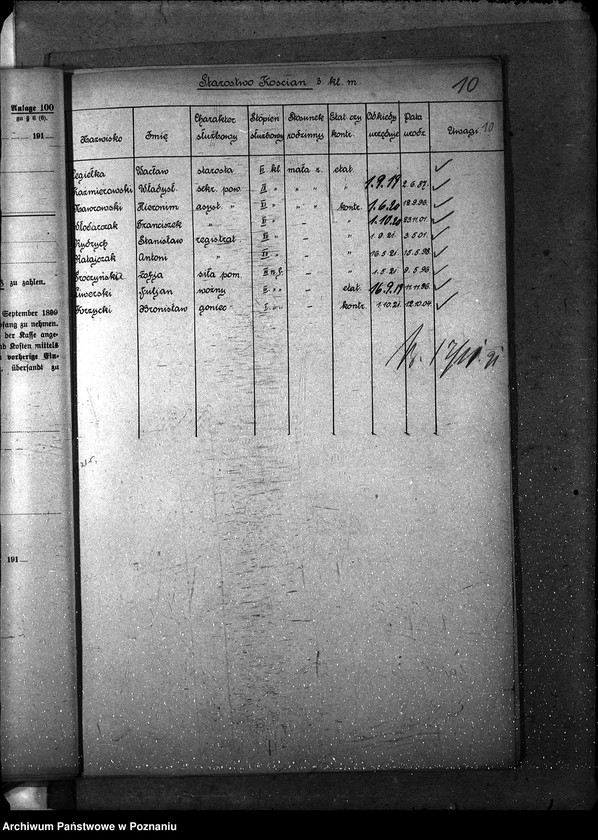 Anlage 100
zu § 11 (6).
191
zu zahlen.
September 1899
fang zu nehmen.
der Kasse ange-
Kosten mittels
vorherige Ein-
übersandt zu
191
Starostwo Kościan 3. kl. m.
10
Nazwisko Imię Charakter służbowy Stopień służbowy Stosunek rodzinny Etat. czy kontr. Od kiedy urzęduje Data urodz. Uwagi 10
Wacław starosta kl. etat.
Kaźmierowski Władysł. sekr. pow. " " " " 1.9.19 2.6.87.
Nawrowski Hieronim asyst. " " " " kontr. 1.6.20
Franciszek " " - " 1.10.20 23.11.01.
Rydrych Stanisław registrat. " - " 1.9.21. 3.5.01.
Ratajczak Antoni " " - " 16.5.21. 15.5.98.
Zofja siła pom. - " 1.5.21. 9.5.96.
Juljan woźny - etat. 16.9.19 11.11.86.
Korzycki Bronisław goniec - kontr. 1.10.21. 12.10.04.
Archiwum Państwowe w Poznaniu